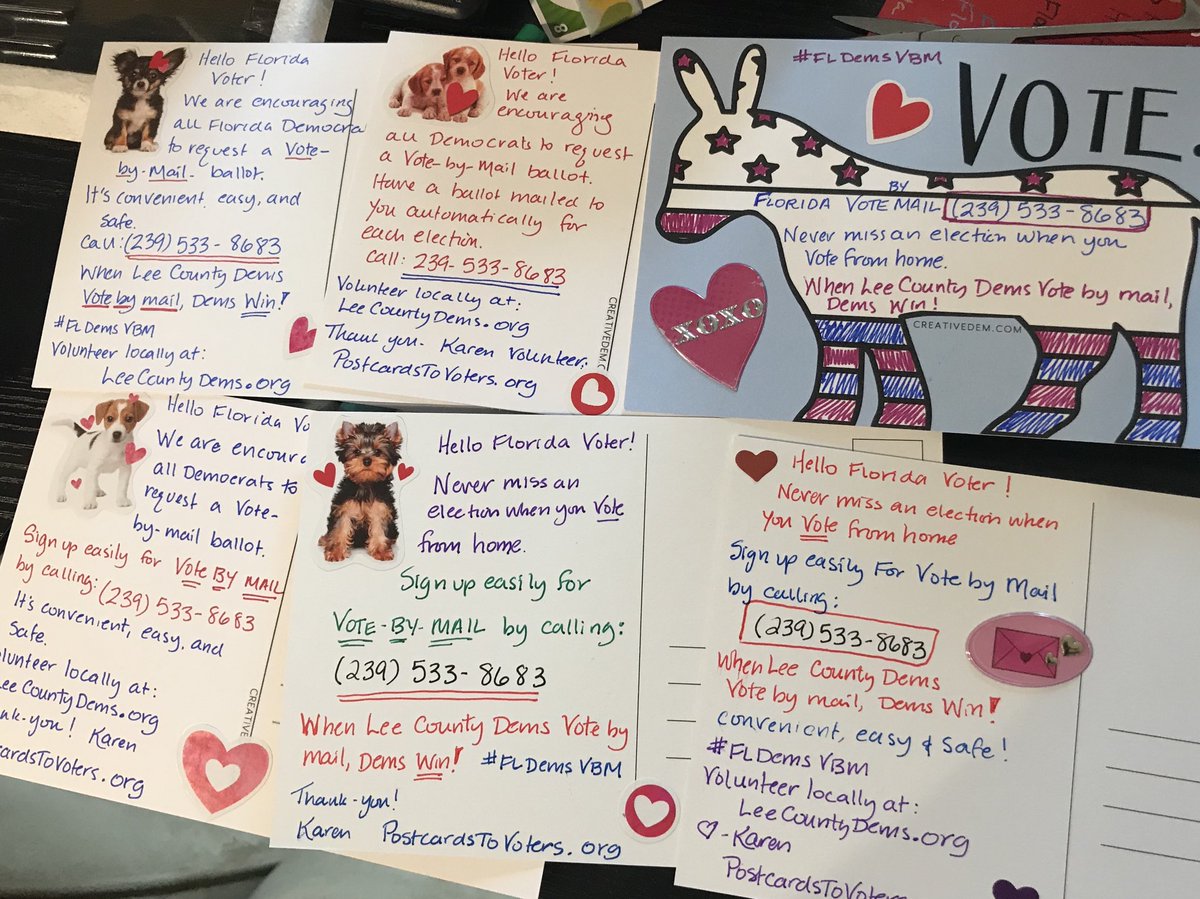 Hello Florida
Voter!
We are encouraging
all Florida Democra
to request a Vote-
by-Mail- ballot.
It's convenient, easy, and
safe.
Call: (239) 533-8683
When Lee County Dems
Vote by mail, Dems Win!
#FLDemsVBM
Volunteer locally at:
LeeCountyDems.org
Hello Florida
Voter!
We are
encouraging
all Democrats to request
a Vote-by-Mail ballot.
Have a ballot mailed to
you automatically for
each election.
call: 239-533-8683
Volunteer locally at:
LeeCountyDems.org
Thank you- Karen Volunteer,
PostcardsToVoters.org
CREATIVEDEM.C
#FLDemsVBM
VOTE.
BY
FLORIDA VOTE MAIL (239) 533-8683
Never miss an election when you
Vote from home.
When Lee County Dems Vote by mail,
Dems Win!
CREATIVEDEM.COM
XOXO
Hello Florida Vo
We are encourag
all Democrats to
request a Vote-
by-mail ballot.
Sign up easily for Vote BY MAIL
by calling: (239) 533-8683
It's convenient, easy, and
Safe.
olunteer locally at:
eeCountyDems.org
nk-you! Karen
cardsToVoters.org
CREATIVE
Hello Florida Voter!
Never miss an
election when you Vote
from home.
Sign up easily for
VOTE-BY-MAIL by calling:
(239) 533-8683
When Lee County Dems Vote by
mail, Dems Win! #FLDemsVBM
Thank-you!
Karen PostcardsToVoters.org
Hello Florida Voter!
Never miss an election when
you Vote from home
Sign up easily For Vote by Mail
by calling:
(239) 533-8683
When Lee County Dems
Vote by mail, Dems Win!
convenient, easy & safe!
#FLDemsVBM
Volunteer locally at:
LeeCountyDems.org
♡-Karen
PostcardsToVoter